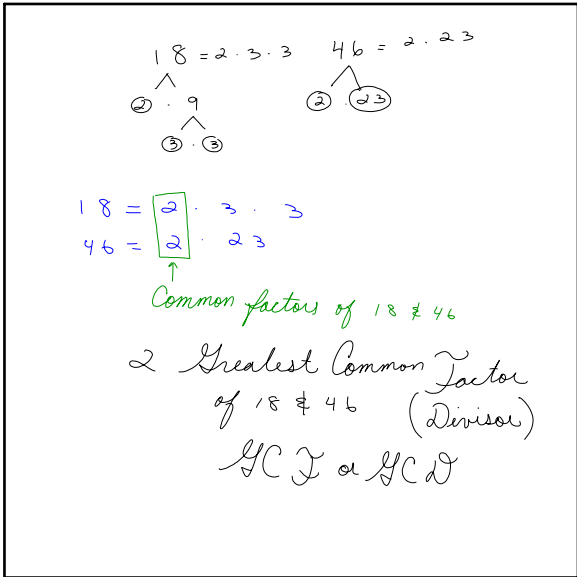 18 = 2 · 3 · 3
46 = 2 · 23
2 · 9
2 · 23
3 · 3
18 = 2 · 3 · 3
46 = 2 · 23
Common factors of 18 & 46
2 Greatest Common Factor
of 18 & 46 (Divisor)
GCF or GCD